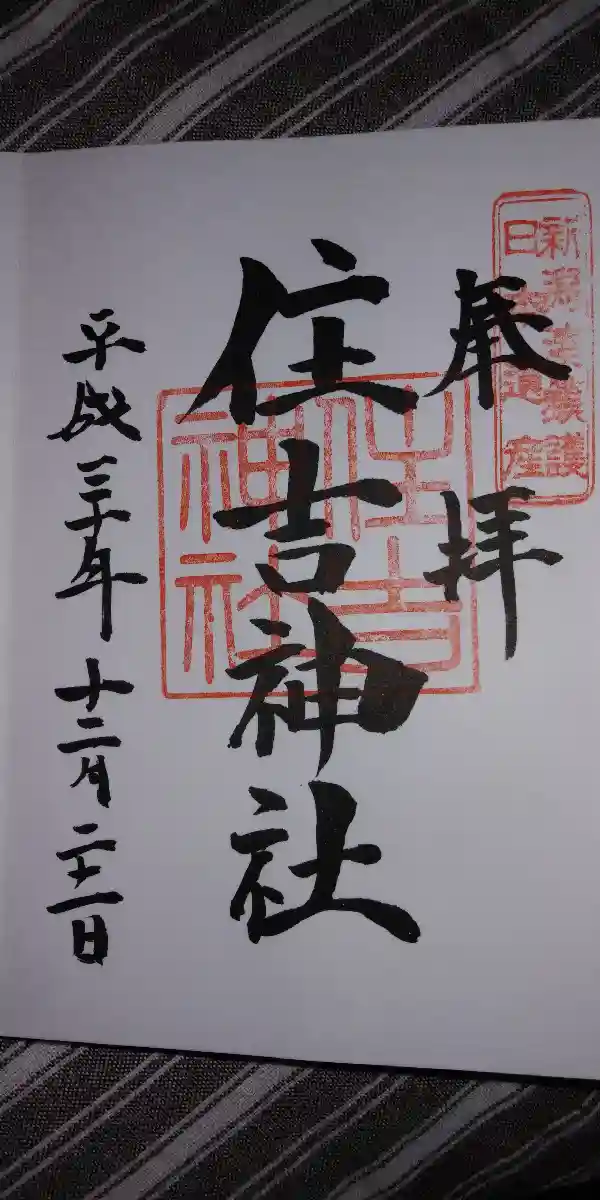 奉拝
日本遺産
住吉神社
住吉神社
平成三十年十二月二十一日